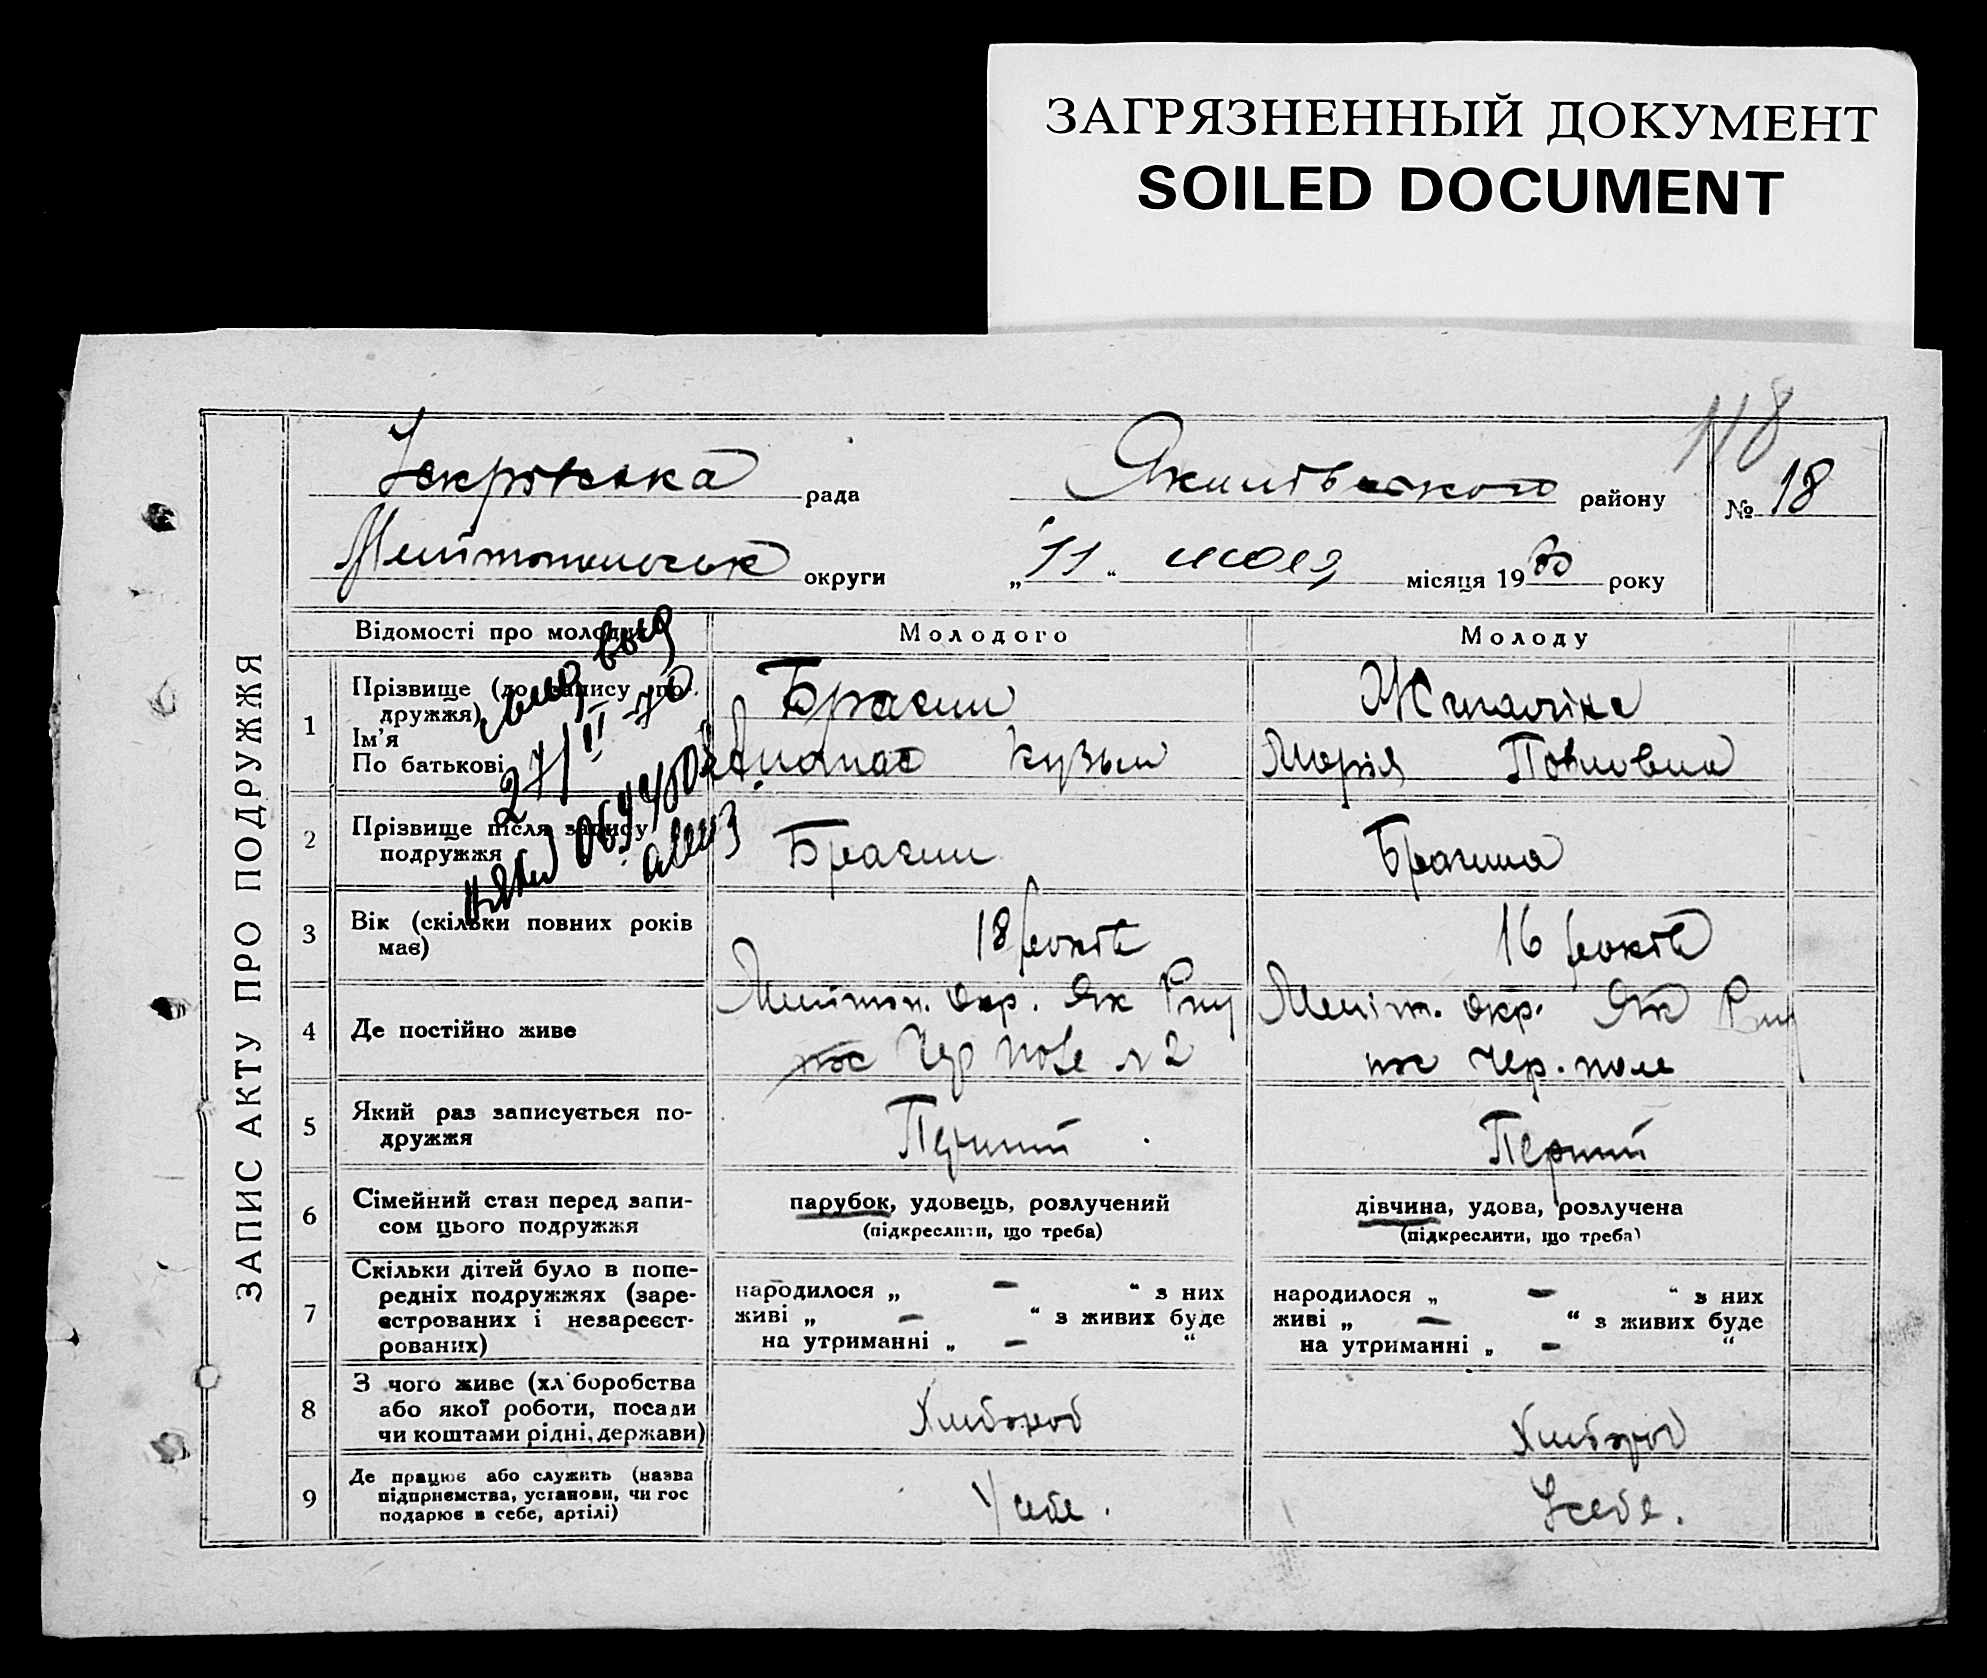 ЗАГРЯЗНЕННЫЙ ДОКУМЕНТ
SOILED DOCUMENT
118
рада
району
№ 18
округи
„11“ июля місяця 1930 року
ЗАПИС АКТУ ПРО ПОДРУЖЖЯ
Відомості про молодих
Молодого
Молоду
1
Прізвище (до запису по-
дружжя)
Ім'я
По батькові
Брагин
Кузьм
Марія Повловна
27/II-70
2
Прізвище після запису
подружжя
Брагин
Брагина
3
Вік (скільки повних років
має)
18 років
16 років
4
Де постійно живе
Меліт. окр. Як
пос Чер поле №2
Меліт. окр. Як
пос Чер. поле
5
Який раз записується по-
дружжя
Перший
Перший
6
Сімейний стан перед запи-
сом цього подружжя
парубок, удовець, розлучений
(підкреслити, що треба)
дівчина, удова, розлучена
(підкреслити, що треба)
7
Скільки дітей було в попе-
редніх подружжях (заре-
єстрованих і незареєст-
рованих)
народилося „ — “ з них
живі „ — “ з живих буде
на утриманні „ — “
народилося „ — “ з них
живі „ — “ з живих буде
на утриманні „ — “
8
З чого живе (хліборобства
або якої роботи, посади
чи коштами рідні, держави)
Хлибороб
Хлибороб
9
Де працює або служить (назва
підприємства, установи, чи гос
подарює в себе, артілі)
У себе.
У себе.